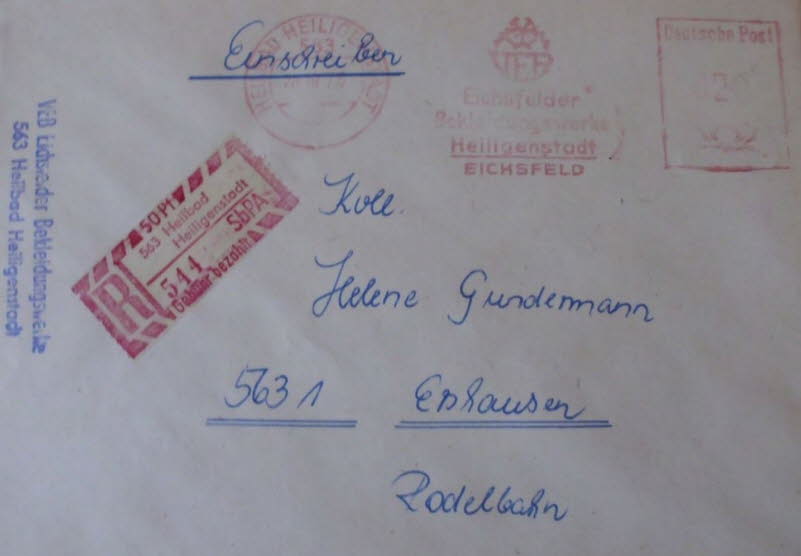 Einschreiben
HEILBAD HEILIGENSTADT
563
VEB
Eichsfelder
Bekleidungswerke
Heiligenstadt
EICHSFELD
Deutsche Post
VEB Eichsfelder Bekleidungswerke
563 Heilbad Heiligenstadt
50 Pf
563 Heilbad
Heiligenstadt
R
544 SbPA
Gebühr bezahlt
Koll.
Helene Gundermann
5631 Ershausen
Rodelbahn